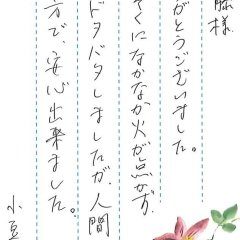 藤様
がとうございました。
そくになかなか火が点かず、
ドタバタしましたが、人間
方で、安心出来ました。
小豆